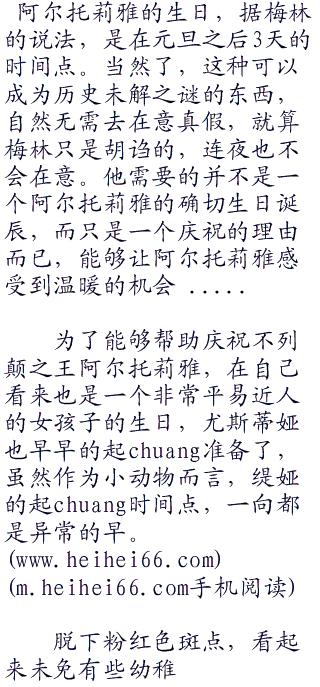 阿尔托莉雅的生日，据梅林
的说法，是在元旦之后3天的
时间点。当然了，这种可以
成为历史未解之谜的东西，
自然无需去在意真假，就算
梅林只是胡诌的，连夜也不
会在意。他需要的并不是一
个阿尔托莉雅的确切生日诞
辰，而只是一个庆祝的理由
而已，能够让阿尔托莉雅感
受到温暖的机会 .....
为了能够帮助庆祝不列
颠之王阿尔托莉雅，在自己
看来也是一个非常平易近人
的女孩子的生日，尤斯蒂娅
也早早的起chuang准备了，
虽然作为小动物而言，缇娅
的起chuang时间点，一向都
是异常的早。
(www.heihei66.com)
(m.heihei66.com手机阅读)
脱下粉红色斑点，看起
来未免有些幼稚